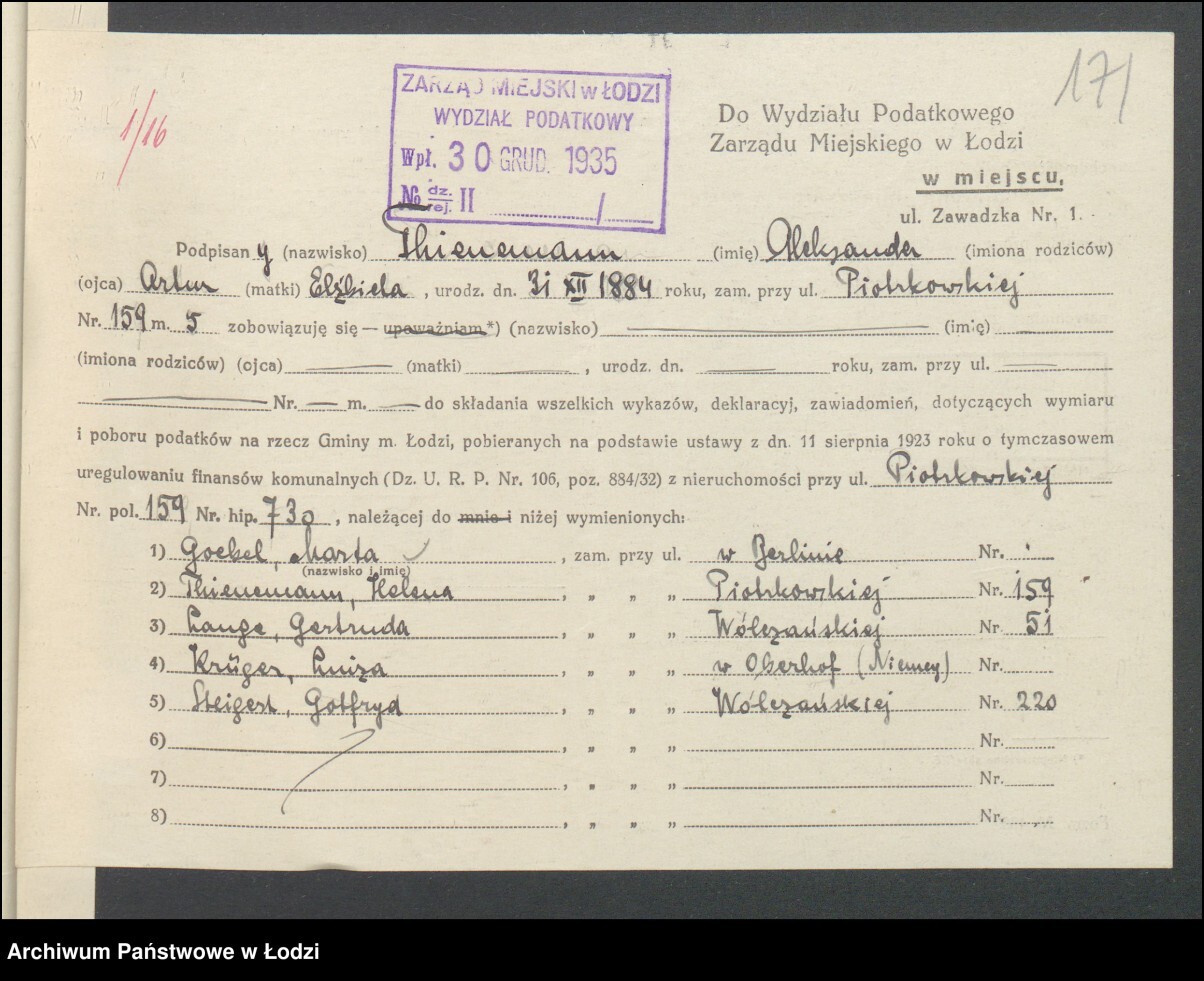 171
1/16
ZARZĄD MIEJSKI w ŁODZI
WYDZIAŁ PODATKOWY
Wpł. 30 GRUD. 1935
№ dz./rej. II ............/......
Do Wydziału Podatkowego
Zarządu Miejskiego w Łodzi
w miejscu,
ul. Zawadzka Nr. 1.
Podpisan y (nazwisko) Thienemann (imię) Aleksander (imiona rodziców)
(ojca) Artur (matki) Elżbieta, urodz. dn. 31 XII 1884 roku, zam. przy ul. Piotrkowskiej
Nr. 159 m. 5 zobowiązuję się — upoważniam*) (nazwisko) — (imię) —
(imiona rodziców) (ojca) — (matki) —, urodz. dn. — roku, zam. przy ul. —
— Nr. — m. — do składania wszelkich wykazów, deklaracyj, zawiadomień, dotyczących wymiaru
i poboru podatków na rzecz Gminy m. Łodzi, pobieranych na podstawie ustawy z dn. 11 sierpnia 1923 roku o tymczasowem
uregulowaniu finansów komunalnych (Dz. U. R. P. Nr. 106, poz. 884/32) z nieruchomości przy ul. Piotrkowskiej
Nr. pol. 159 Nr. hip. 730, należącej do mnie i niżej wymienionych:
1) Goebel, Marta, zam. przy ul. w Berlinie Nr.
(nazwisko i imię)
2) Thienemann, Helena, „ „ „ Piotrkowskiej Nr. 159
3) Lange, Gertruda, „ „ „ Wólczańskiej Nr. 51
4) Krüger, Luiza, „ „ „ w Oberhof (Niemcy) Nr.
5) Steigert, Gotfryd, „ „ „ Wólczańskiej Nr. 220
6), „ „ „ Nr.
7), „ „ „ Nr.
8), „ „ „ Nr.
Archiwum Państwowe w Łodzi